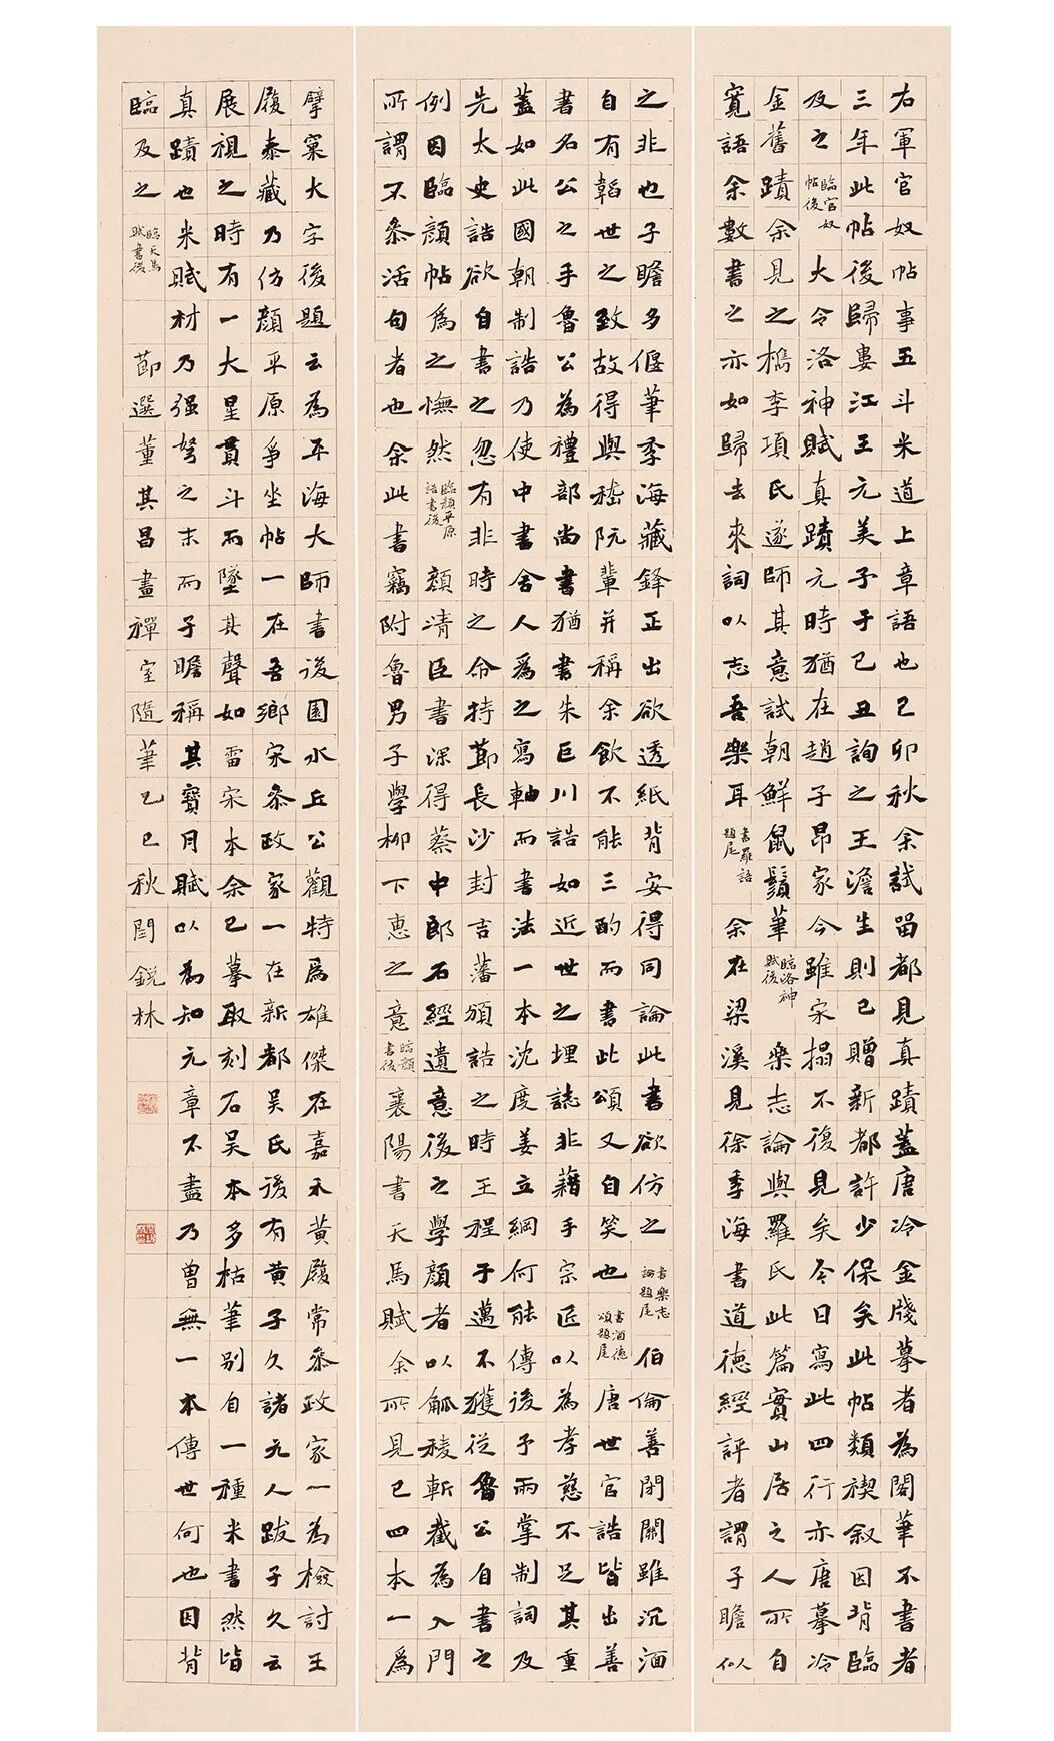 右軍官奴帖事五斗米道上章語也己卯秋余試留都見真蹟蓋唐冷金牋摹者為閣筆不書者
三年此帖後歸婁江王元美予于己丑詢之王澹生則已贈新都許少保矣此帖類禊叙因背臨
及之臨官奴帖後大令洛神賦真蹟元時猶在趙子昂家今雖宋搨不復見矣今日寫此四行亦唐摹冷
金舊蹟余見之檇李項氏遂師其意試朝鮮鼠鬚筆臨洛神賦後樂志論與羅氏此篇實山居之人所自
寬語余數書之亦如歸去來詞以志吾樂耳書羅語題尾余在梁溪見徐季海書道德經評者謂子瞻似
之非也子瞻多偃筆季海藏鋒正出欲透紙背安得同論此書欲仿之書樂志論題尾伯倫善閉關雖沉湎
自有韜世之致故得與嵇阮輩并稱余飲不能三酌而書此頌又自笑也書酒德頌題尾唐世官誥皆出善
書名公之手魯公為禮部尚書猶書朱巨川誥如近世之埋誌非藉手宗匠以為孝慈不足其重
蓋如此國朝制誥乃使中書舍人為之寫軸而書法一本沈度姜立綱何能傳後予兩掌制詞及
先太史誥欲自書之忽有非時之命持節長沙封吉藩頒誥之時王程于邁不獲從魯公自書之
例因臨顏帖為之憮然臨顏平原誥書後顏清臣書深得蔡中郎石經遺意後之學顏者以觚稜斬截為入門
所謂不参活句者也余此書竊附魯男子學柳下惠之竟臨顏書後襄陽書天馬賦余所見已四本一為
擘窠大字後題云為平海大師書後園水丘公觀特為雄傑在嘉禾黃履常叅政家一為檢討王
履泰藏乃仿顏平原爭坐帖一在吾鄉宋叅政家一在新都吳氏後有黃子久諸元人跋子久云
展視之時有一大星貫斗而墜其聲如雷宋本余已摹取刻石吳本多枯筆别自一種米書然皆
真蹟也米賦材乃强弩之末而子瞻稱其寶月賦以為知元章不盡乃曾無一本傳世何也因背
臨及之臨天馬賦書後 節選董其昌畫禪室隨筆己巳秋閆銳林